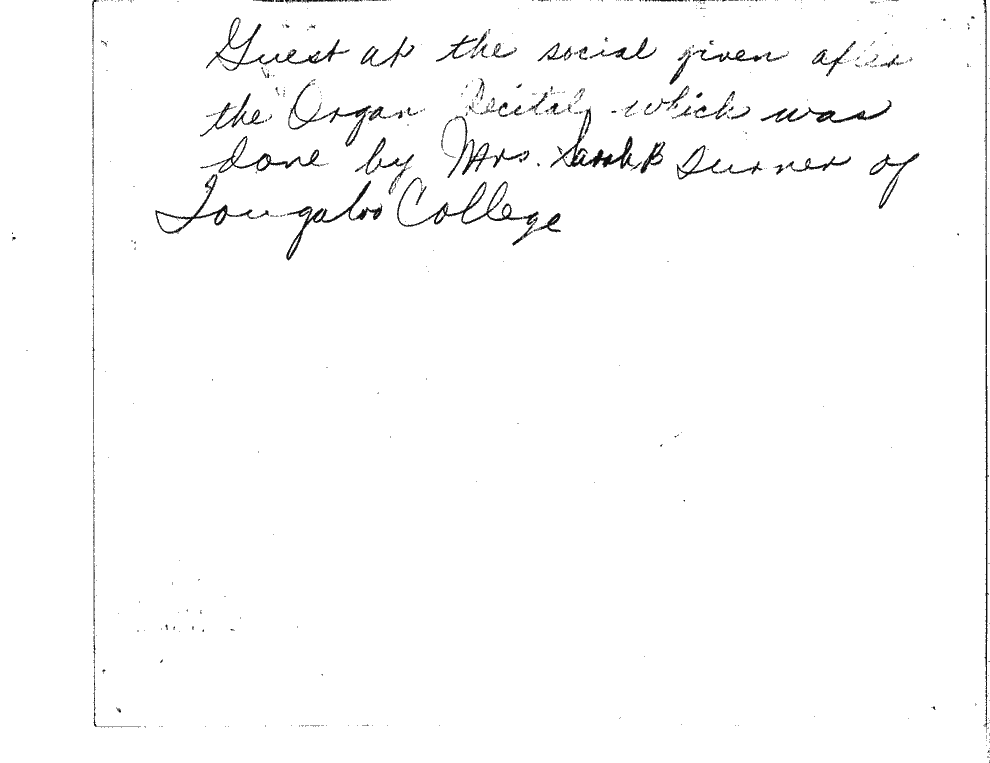 Guest at the social given after
the Organ Recital, which was
done by Mrs. Sarah B Turner of
Tougaloo College